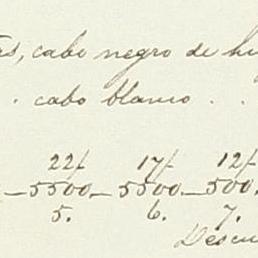 cabo negro de
. cabo blanco . .
22/ 17/ 12/
5500 5500 500
5. 6. 7.